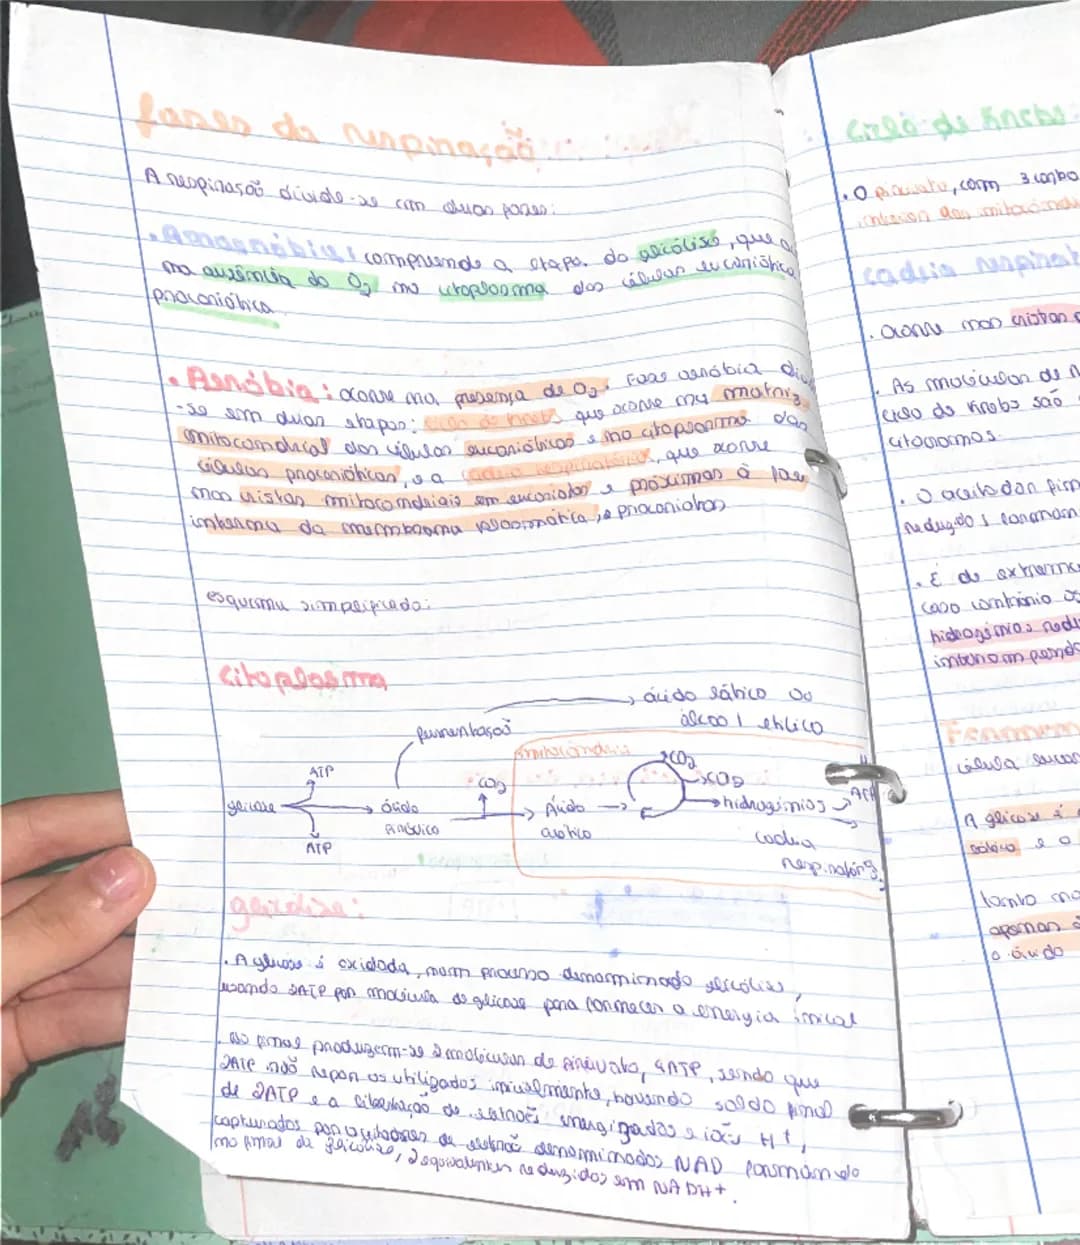 fases da respiração
A respiração divide-se em duas fases:
• Anaeróbia: compreende a etapa da glicólise, que
na ausência do O2 no citoplasma das células eucariótica
procariótica
• Aeróbia: ocorre na presença de O2. Fase aeróbia
-se em duas etapas: ciclo de Krebs que ocorre na matriz
mitocondrial das células eucarióticas e no citoplasma das
células procarióticas, e a cadeia respiratória, que ocorre
nas cristas mitocondriais em eucariotas e próximas à face
interna da membrana plasmática, procariotas
esquema simplificado:
citoplasma
ácido lático ou
álcool etílico
fermentação
mitocôndria
ATP
CO2
CO2
CO2
glicose
ácido
pirúvico
Ácido
acético
hidrogênios
ATP
ATP
cadeia
respiratória
glicólise:
. A glicose é oxidada, num processo denominado glicólise,
usando 2ATP por molécula de glicose para fornecer a energia inicial
. Ao final produzem-se 2 moléculas de piruvato, 4ATP, sendo que
2ATP são repor os utilizados inicialmente, havendo saldo final
de 2ATP e a liberação de elétrons energizados e iões H+,
capturados por aceitadores de elétrons denominados NAD formando
no final da glicólise, 2 equivalentes reduzidos em NADH+.
ciclo de Krebs
. O piruvato, com 3 carbo
interior das mitocôndri
cadeia respirat
. Ocorre nas cristas
. As moléculas de
ciclo de Krebs são
citocromos.
. O aceitador fin
redução formam
. É de extrema
caso contrário os
hidrogênios redu
Fermen
célula eucar
A glicose é
e o
tanto na
apenas
o ácido